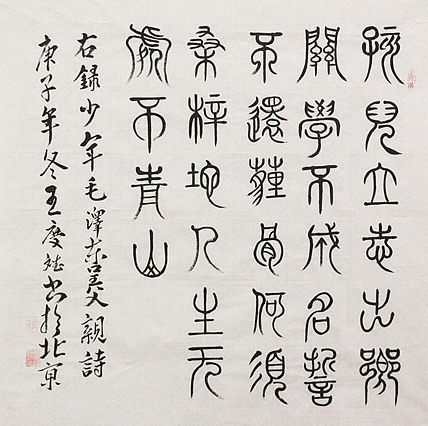 孩兒立志出鄉
關學不成名誓
不還薶骨何須
桑梓地人生无
處不青山
右錄少年毛澤东父親詩
庚子年冬王度书於北京